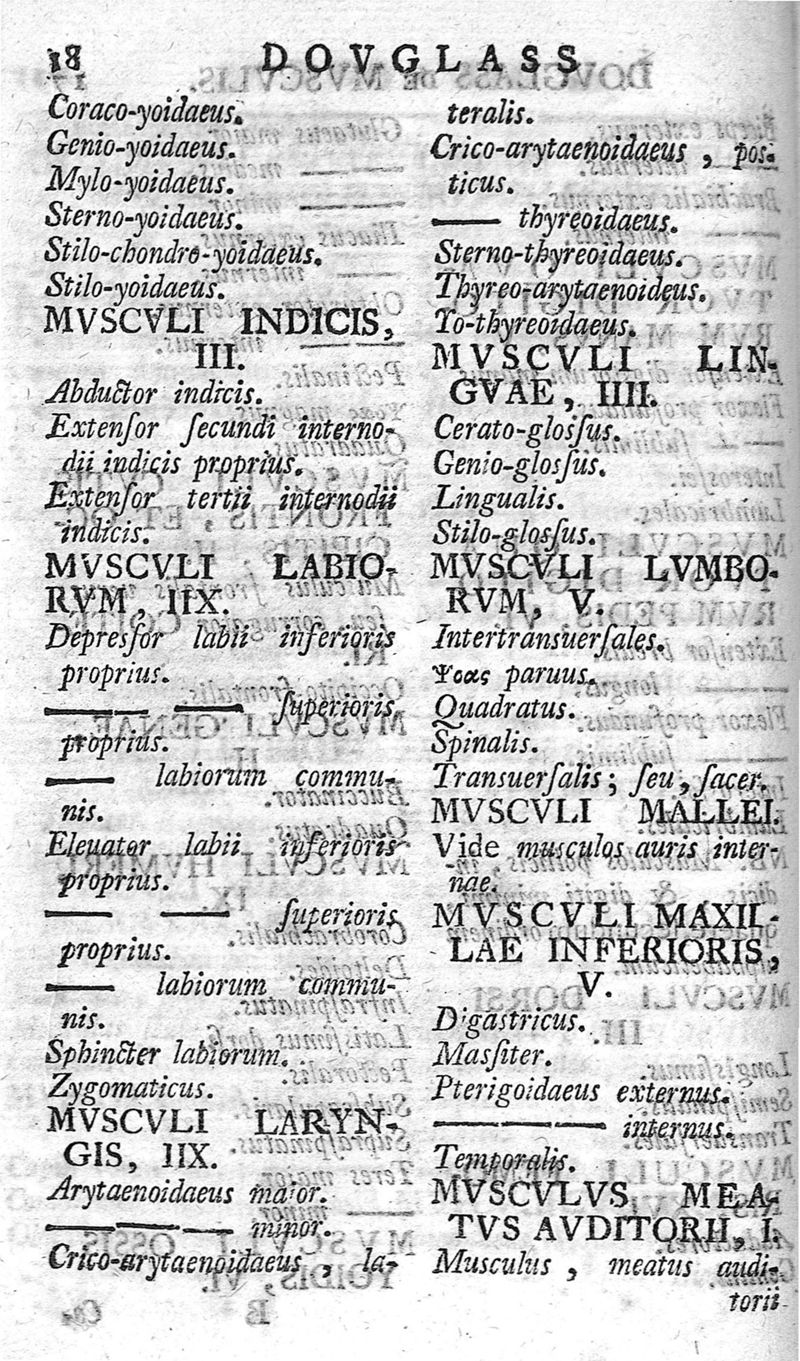 18 DOVGLASS
Coraco-yoidaeus.
Genio-yoidaeus.
Mylo-yoidaeus.
Sterno-yoidaeus.
Stilo-chondro-yoidaeus.
Stilo-yoidaeus.
MVSCVLI INDICIS,
III.
Abductor indicis.
Extenſor ſecundi interno-
dii indicis proprius.
Extenſor tertii internodii
indicis.
MVSCVLI LABIO-
RVM, IIX.
Depreſſor labii inferioris
proprius.
—— —— ſuperioris
proprius.
—— labiorum commu-
nis.
Eleuator labii inferioris
proprius.
—— —— ſuperioris
proprius.
—— labiorum commu-
nis.
Sphincter labiorum.
Zygomaticus.
MVSCVLI LARYN-
GIS, IIX.
Arytaenoidaeus maior.
—— —— —— minor.
Crico-arytaenoidaeus, la-
teralis.
Crico-arytaenoidaeus, pos-
ticus.
—— thyreoidaeus.
Sterno-thyreoidaeus.
Thyreo-arytaenoideus.
To-thyreoidaeus.
MVSCVLI LIN-
GVAE, IIII.
Cerato-gloſſus.
Genio-gloſſus.
Lingualis.
Stilo-gloſſus.
MVSCVLI LVMBO-
RVM, V.
Intertransuerſales.
Ψοας paruus.
Quadratus.
Spinalis.
Transuerſalis; ſeu, ſacer.
MVSCVLI MALLEI.
Vide musculos auris inter-
nae.
MVSCVLI MAXIL-
LAE INFERIORIS,
V.
Digastricus.
Masſiter.
Pterigoidaeus externus.
—— —— —— internus.
Temporalis.
MVSCVLVS MEA-
TVS AVDITORII, I.
Musculus, meatus audi-
torii